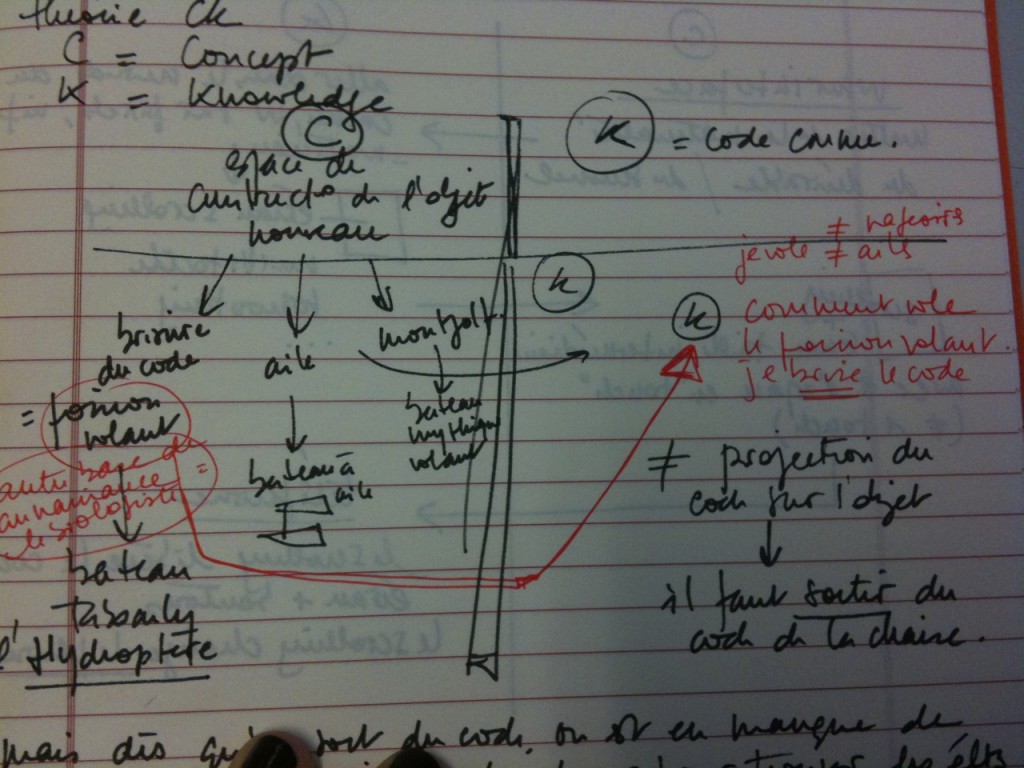 théorie CK
C = Concept
K = Knowledge
C
espace de
constructo de l'objet
nouveau
K = code connu.
≠ nageoires
je vole ≠ aile
K
brisure
du code
= poisson
volant
autre base de
connaissance
le
bateau
Tabarly
l'Hydroptère
aile
bateau à
aile
montgolf.
bateau
mythique
volant
K
comment vole
le poisson volant.
je brise le code
≠ projection du
code sur l'objet
il faut sortir du
code de la chaise.
mais dès qu' sort du code, on est en manque de